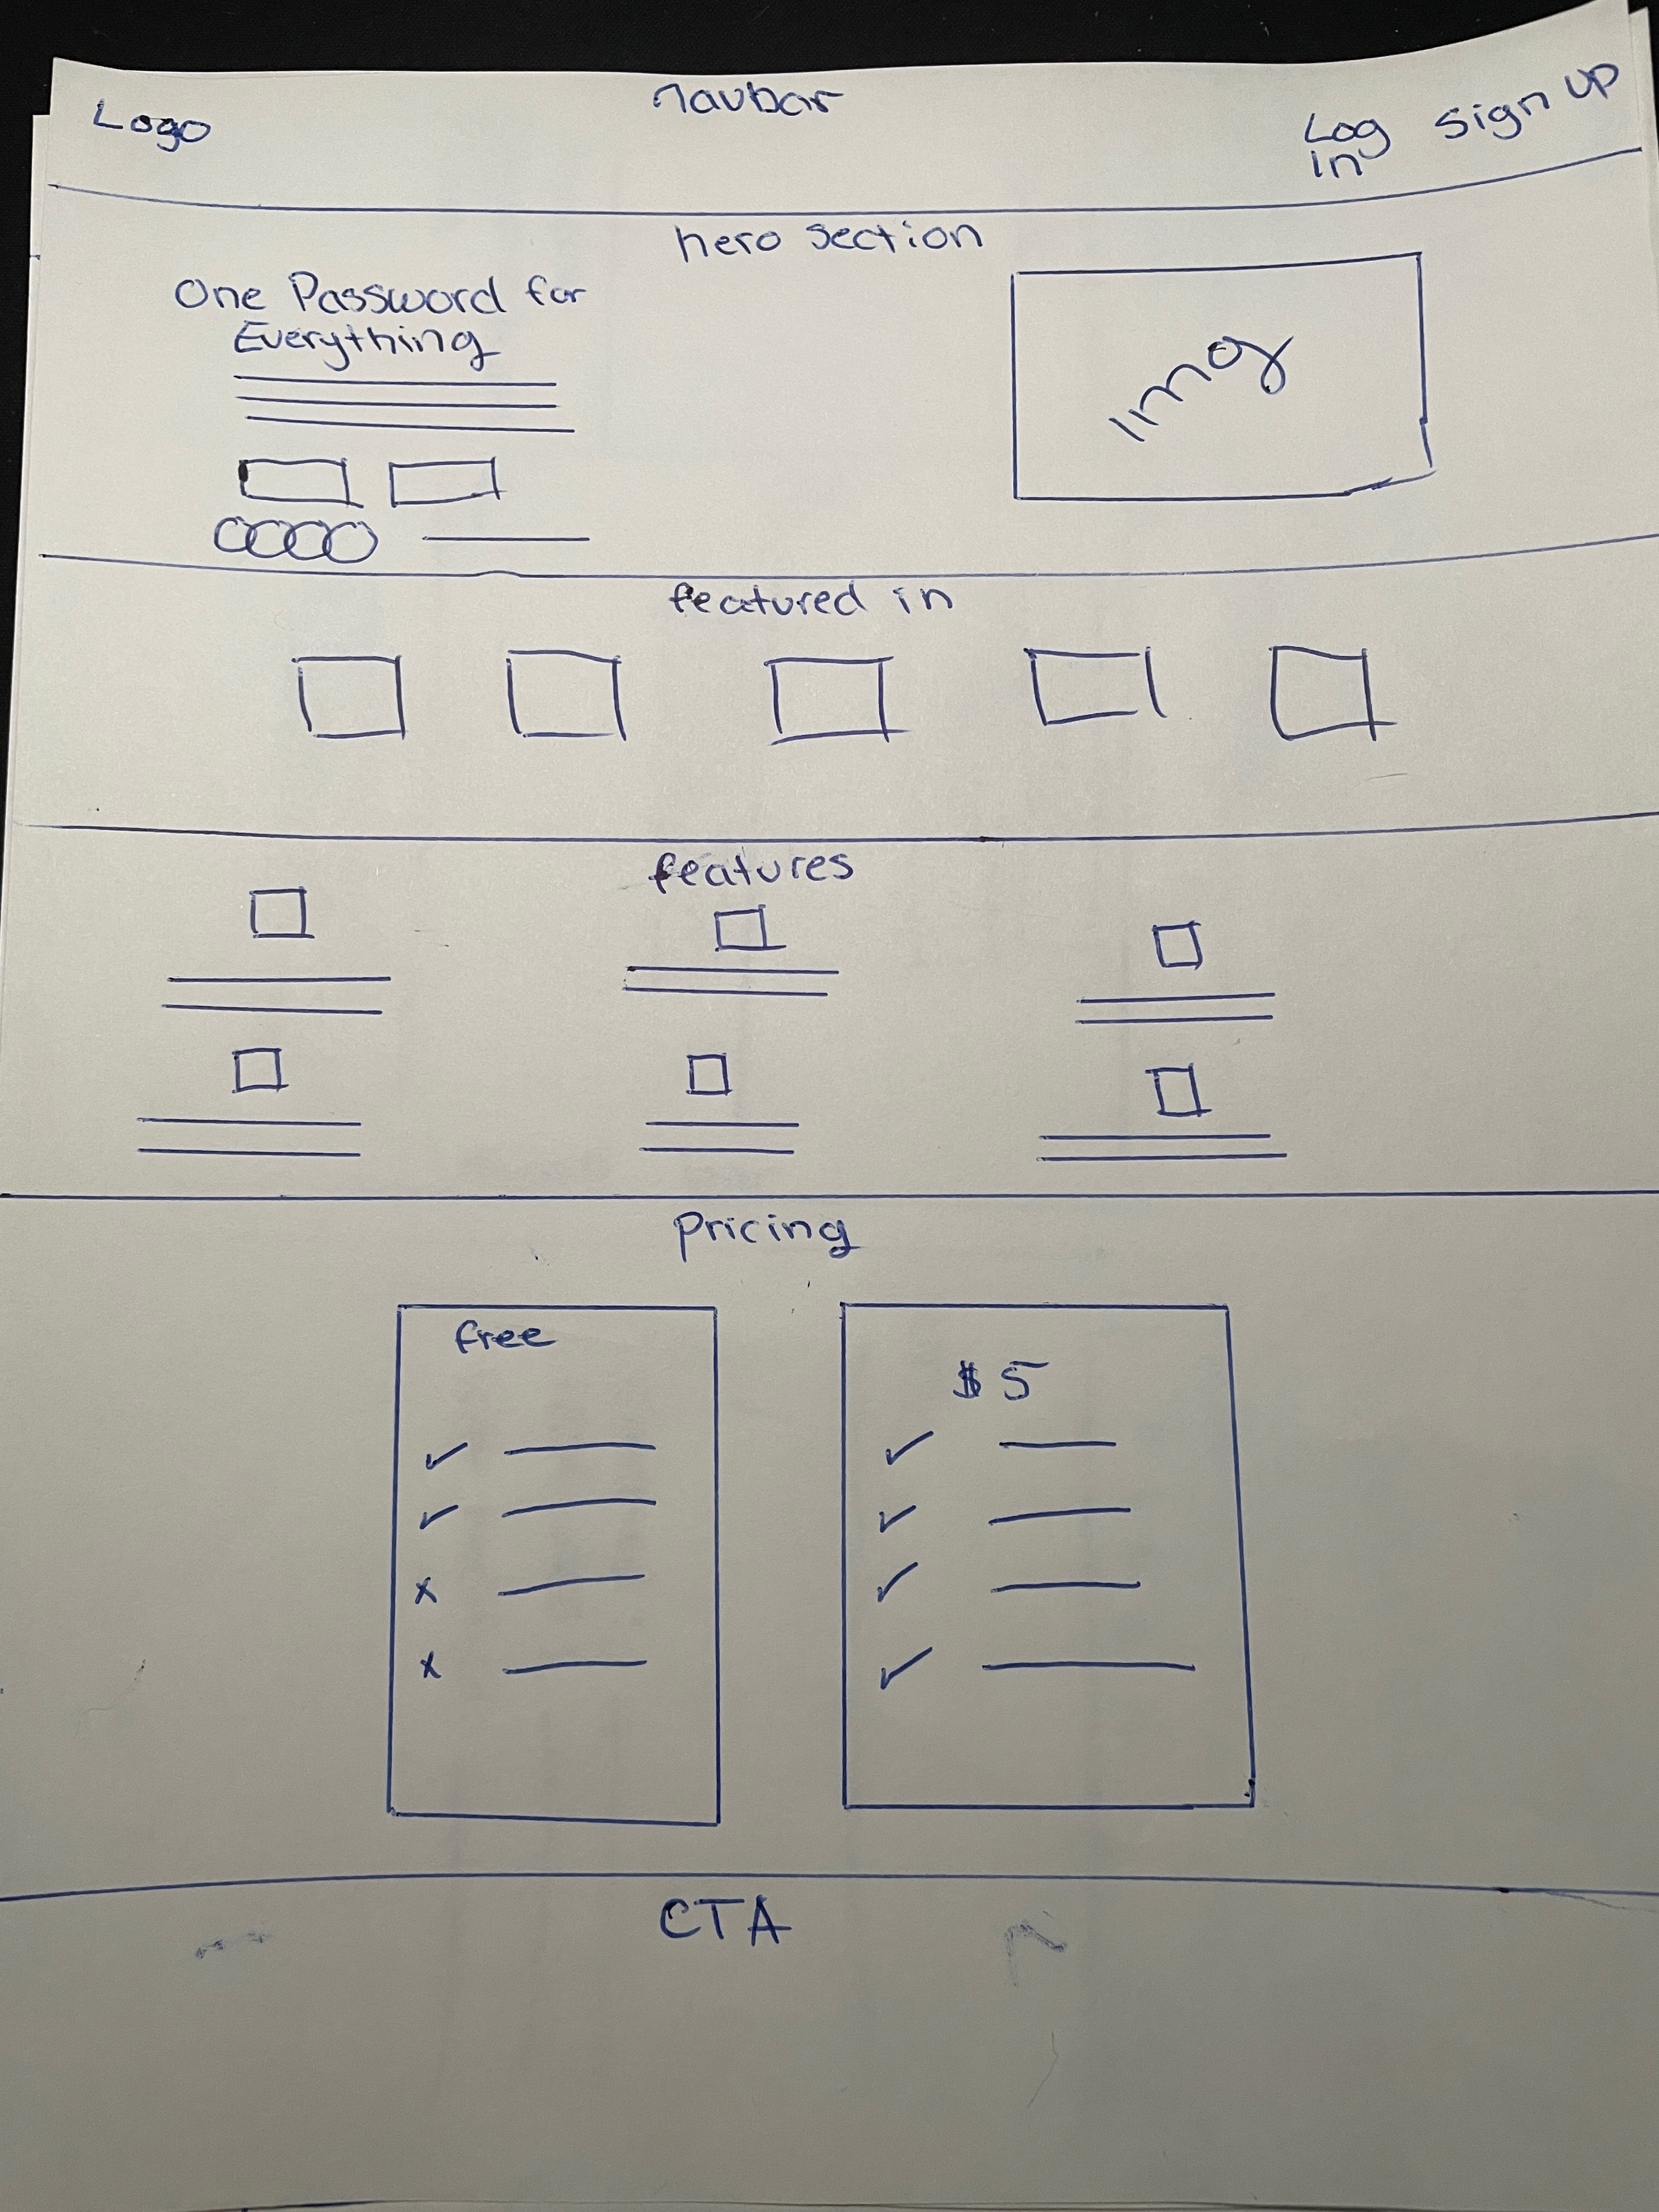 navbar
Logo
Log
In
Sign UP
hero section
One Password for
Everything
Img
featured in
features
Pricing
free
$5
CTA